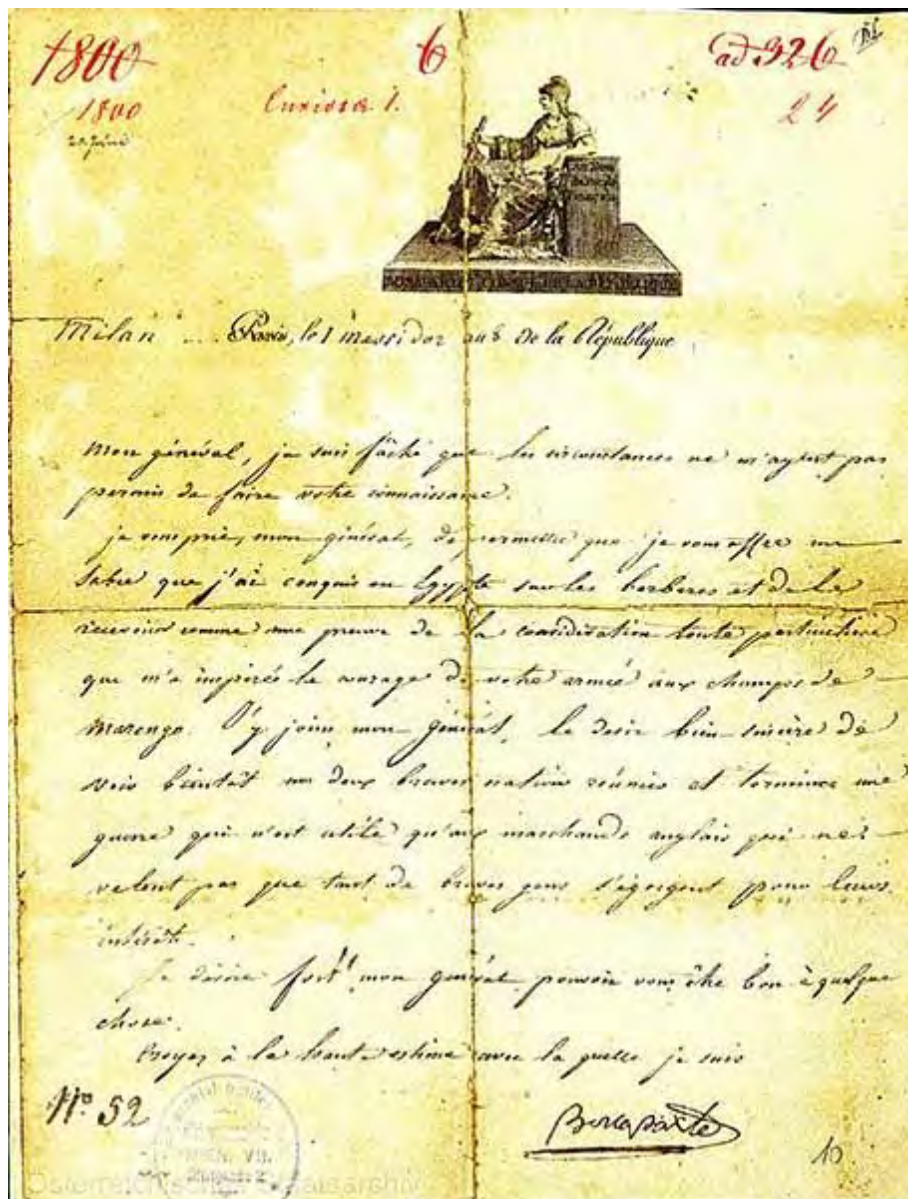 1800
6
ad 326
1800
Curiosa 1.
24
BONAPARTE 1ER CONSUL DE LA REPUBLIQUE
Milan ... Paris, le 1 messidor an 8 de la République
Mon général, je suis fâché que les circonstances ne m'ayent pas
permis de faire votre connaissance.
je vous prie, mon général, de permettre que je vous offre un
sabre que j'ai conquis en Egypte sur les barbares et de le
recevoir comme une preuve de la considération toute particulière
que m'a inspirée le courage de votre armée aux champs de
Marengo. J'y joins mon général, le desir bien sincère de
voir bientôt nos deux braves nations réunies et terminer une
guerre qui n'est utile qu'aux marchands anglais qui ne
velent pas que tant de braves gens s'égorgent pour leurs
intérêts.
Je désire fort mon général pouvoir vous être bon à quelque
chose.
Croyez à la haute estime avec la quelle je suis
Nº 52
Bonaparte
WIEN, VII.
10
Österreichisches Staatsarchiv